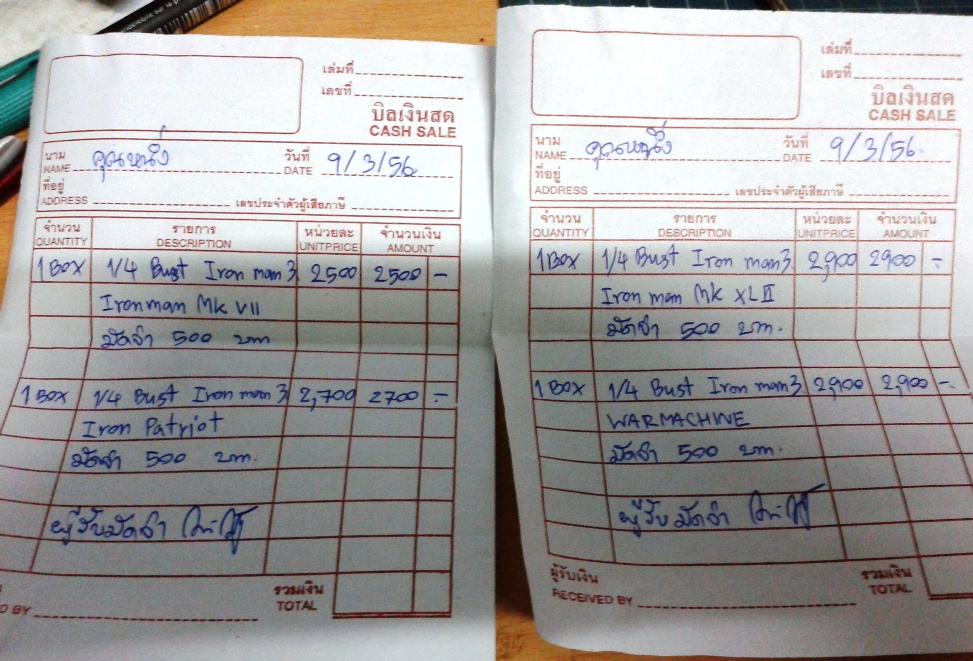 เล่มที่
เลขที่
บิลเงินสด
CASH SALE
นาม
NAME คุณหนึ่ง วันที่
DATE 9/3/56
ที่อยู่
ADDRESS เลขประจำตัวผู้เสียภาษี
จำนวน รายการ หน่วยละ จำนวนเงิน
QUANTITY DESCRIPTION UNITPRICE AMOUNT
1 BOX 1/4 Bust Iron man 3 2500 2500 -
Ironman Mk VII
มัดจำ 500 บาท
1 BOX 1/4 Bust Iron man 3 2,700 2700 -
Iron Patriot
มัดจำ 500 บาท.
ผู้รับมัดจำ
รวมเงิน
D BY TOTAL
เล่มที่
เลขที่
บิลเงินสด
CASH SALE
นาม
NAME คุณหนึ่ง วันที่
DATE 9/3/56.
ที่อยู่
ADDRESS เลขประจำตัวผู้เสียภาษี
จำนวน รายการ หน่วยละ จำนวนเงิน
QUANTITY DESCRIPTION UNITPRICE AMOUNT
1 BOX 1/4 Bust Iron man 3 2,900 2900 -
Iron man Mk XLII
มัดจำ 500 บาท.
1 BOX 1/4 Bust Iron man 3 2,900 2,900 -
WARMACHINE
มัดจำ 500 บาท.
ผู้รับมัดจำ
ผู้รับเงิน รวมเงิน
RECEIVED BY TOTAL